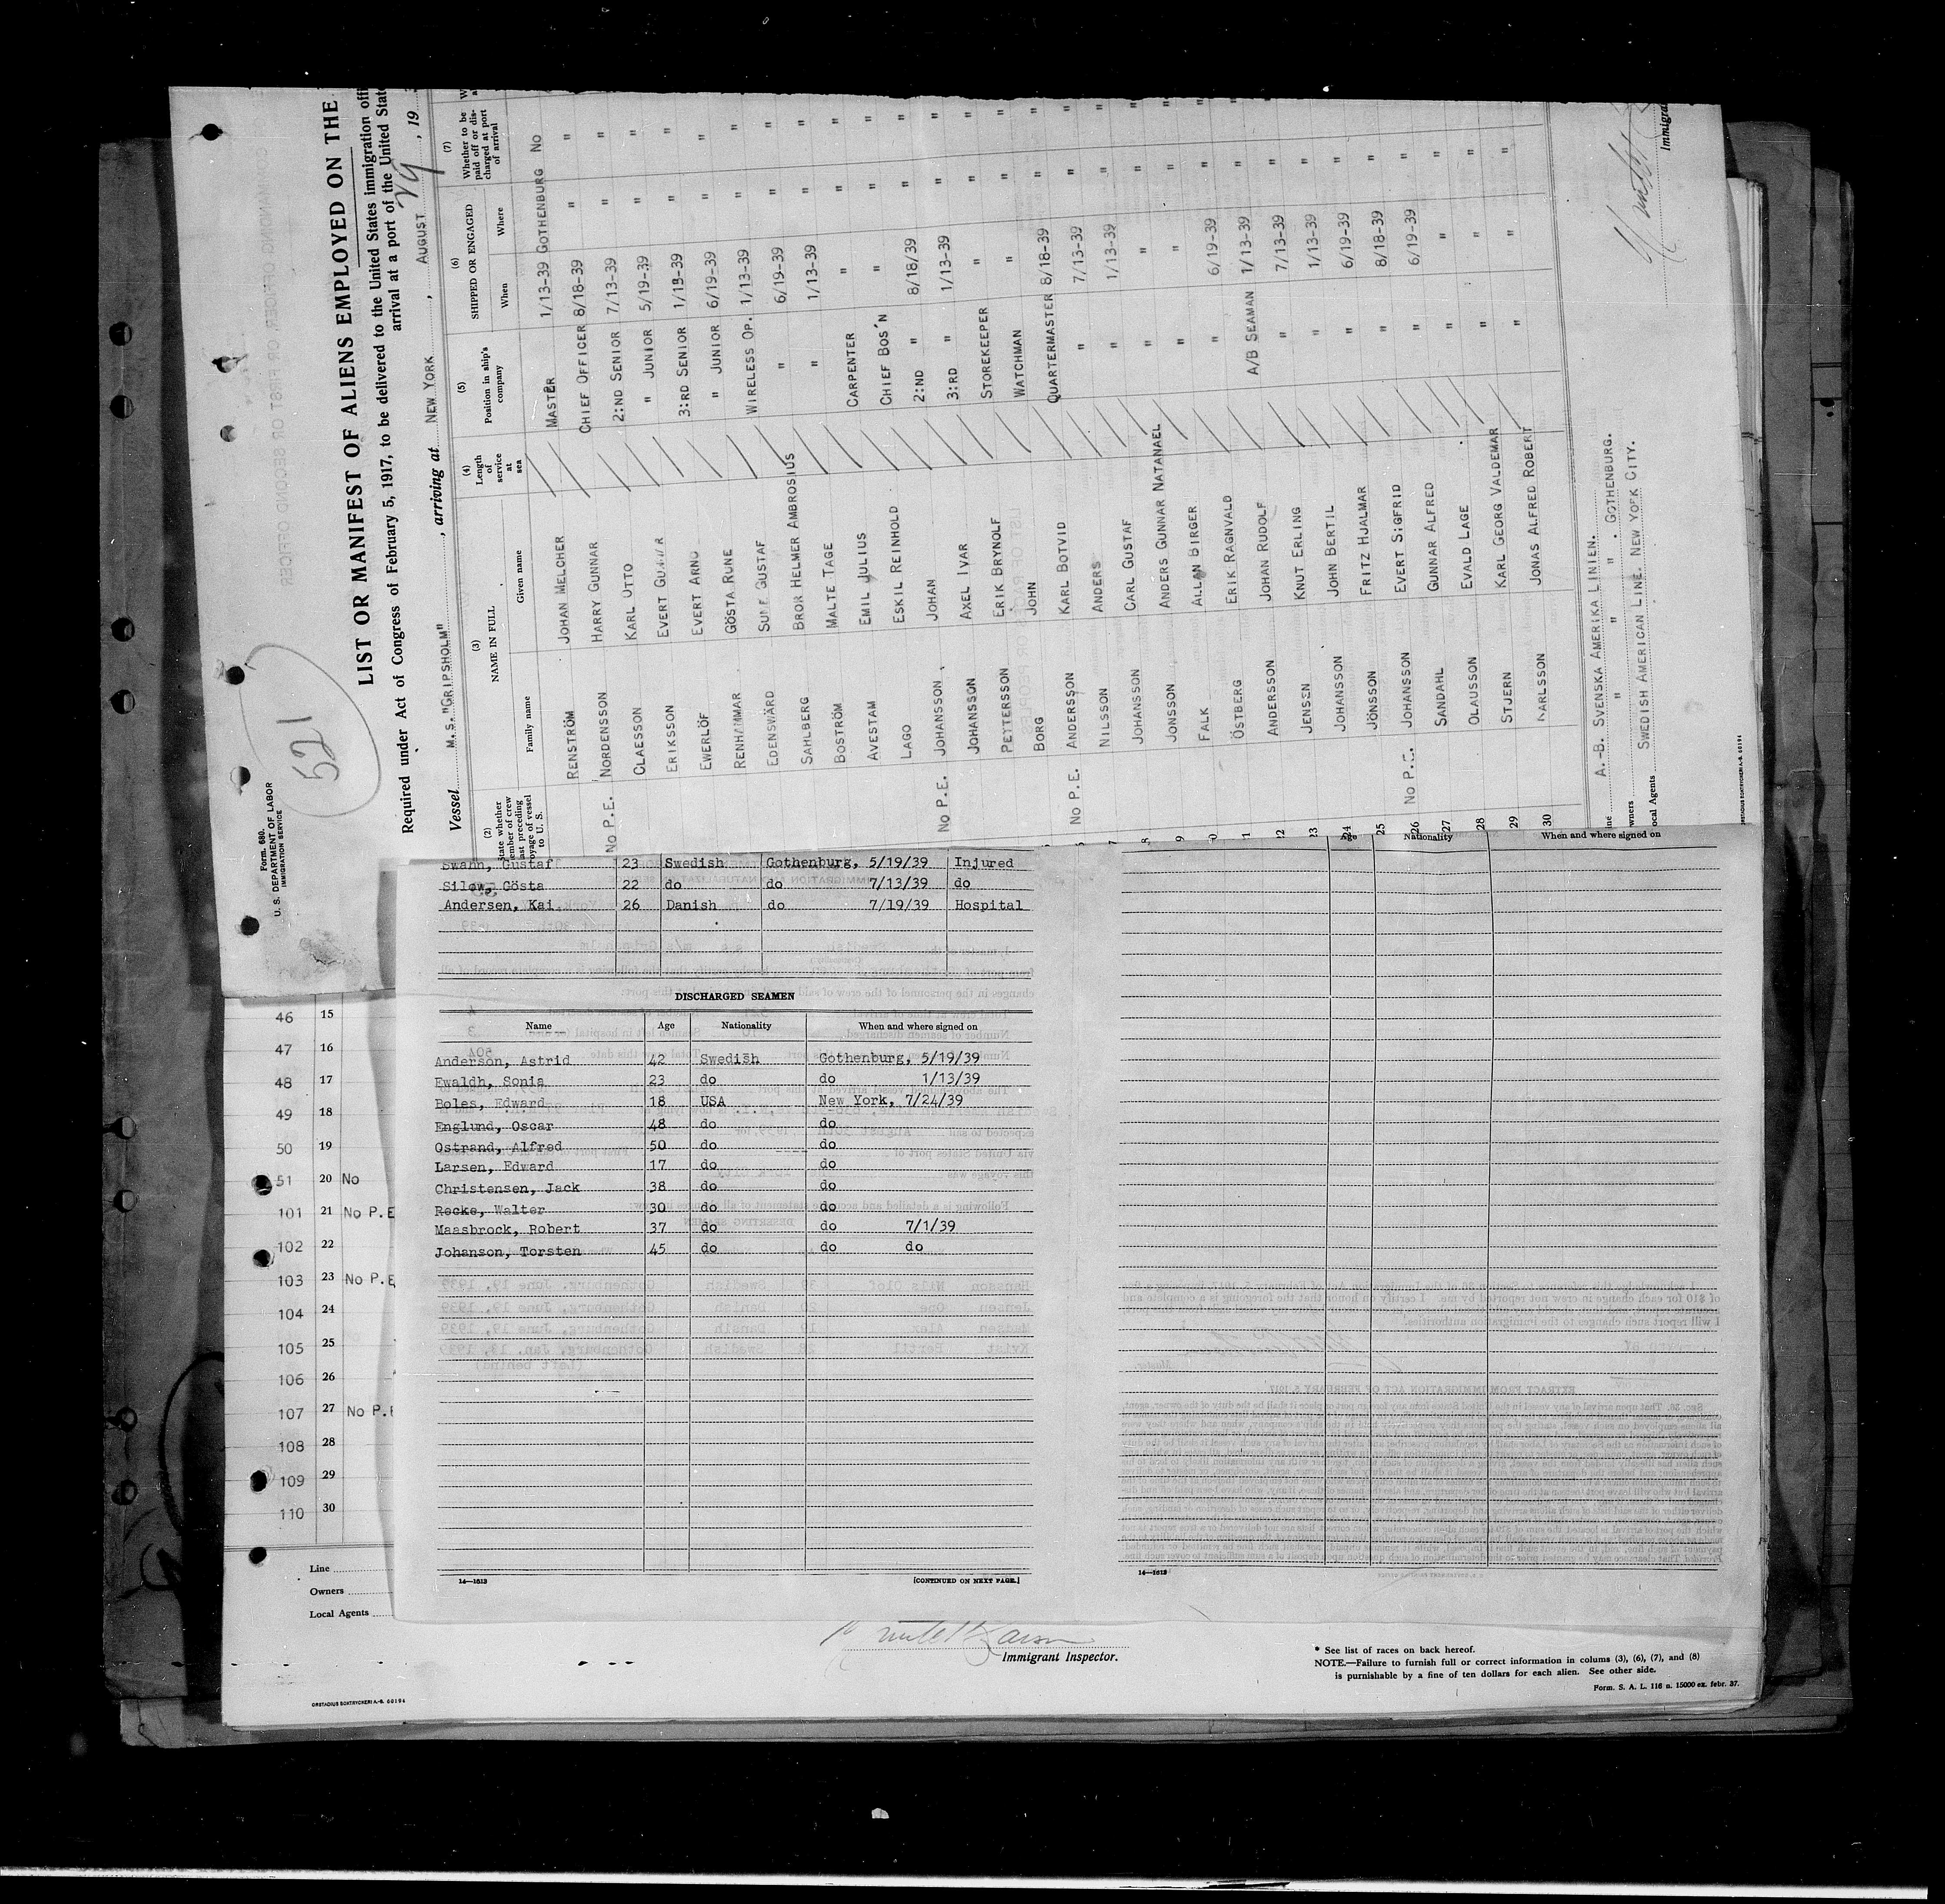 Form 680.
U. S. DEPARTMENT OF LABOR
IMMIGRATION SERVICE
521
LIST OR MANIFEST OF ALIENS EMPLOYED ON THE
Required under Act of Congress of February 5, 1917, to be delivered to the United States immigration
arrival at a port of the United
Vessel M.S."GRIPSHOLM", arriving at NEW YORK, AUGUST 29, 19
(2) (3) (4) (5) (6) (7)
State whether member of crew last preceding voyage of vessel to U. S. NAME IN FULL Length of service at sea Position in ship's company SHIPPED OR ENGAGED Whether to be paid off or discharged at port of arrival
Family name Given name When Where
RENSTRÖM JOHAN MELCHER MASTER 1/13-39 GOTHENBURG No
No P.E. NORDENSSON HARRY GUNNAR CHIEF OFFICER 8/18-39 " "
CLAESSON KARL OTTO 2:ND SENIOR 7/13-39 " "
ERIKSSON EVERT GUNNAR " JUNIOR 5/19-39 " "
EWERLÖF EVERT ARNO 3:RD SENIOR 1/13-39 " "
RENHAMMAR GÖSTA RUNE " JUNIOR 6/19-39 " "
EDENSWÄRD SUNE GUSTAF WIRELESS OP. 1/13-39 " "
SAHLBERG BROR HELMER AMBROSIUS " 6/19-39 " "
BOSTRÖM MALTE TAGE " 1/13-39 " "
AVESTAM EMIL JULIUS CARPENTER " " "
LAGO ESKIL REINHOLD CHIEF BOS'N " " "
No P.E. JOHANSSON JOHAN 2:ND " 8/18/39 " "
JOHANSSON AXEL IVAR 3:RD " 1/13-39 " "
PETTERSSON ERIK BRYNOLF STOREKEEPER " " "
BORG JOHN WATCHMAN " " "
No P.E. ANDERSSON KARL BOTVID QUARTERMASTER 8/18-39 " "
NILSSON ANDERS " 7/13-39 " "
JOHANSSON CARL GUSTAF " 1/13-39 " "
JONSSON ANDERS GUNNAR NATANAEL " " " "
FALK ALLAN BIRGER " " " "
ÖSTBERG ERIK RAGNVALD " 6/19-39 " "
ANDERSSON JOHAN RUDOLF A/B SEAMAN 1/13-39 " "
JENSEN KNUT ERLING " 7/13-39 " "
JOHANSSON JOHN BERTIL " 1/13-39 " "
JÖNSSON FRITZ HJALMAR " 6/19-39 " "
No P.E. JOHANSSON EVERT SIGFRID " 8/18-39 " "
SANDAHL GUNNAR ALFRED " 6/19-39 " "
OLAUSSON EVALD LAGE " " " "
STJERN KARL GEORG VALDEMAR " " " "
KARLSSON JONAS ALFRED ROBERT " " " "
A.-B. SVENSKA AMERIKA LINIEN.
" " " . GOTHENBURG.
SWEDISH AMERICAN LINE. NEW YORK CITY.
Swann, Gustaf 23 Swedish Gothenburg, 5/19/39 Injured
Silow, Gösta 22 do do 7/13/39 do
Andersen, Kai 26 Danish do 7/19/39 Hospital
DISCHARGED SEAMEN
Name Age Nationality When and where signed on
Anderson, Astrid 42 Swedish Gothenburg, 5/19/39
Ewaldh, Sonia 23 do do 1/13/39
Boles, Edward 18 USA New York, 7/24/39
Englund, Oscar 48 do do
Ostrand, Alfred 50 do do
Larsen, Edward 17 do do
Christensen, Jack 38 do do
Recke, Walter 30 do do
Maasbrock, Robert 37 do do 7/1/39
Johanson, Torsten 45 do do do
14—1613 [CONTINUED ON NEXT PAGE.]
Age Nationality When and where signed on
14—1613
46 15
47 16
48 17
49 18
50 19
51 20 No
101 21 No P.E
102 22
103 23 No P.E
104 24
105 25
106 26
107 27 No P.E
108 28
109 29
110 30
Line
Owners
Local Agents
Immigrant Inspector.
* See list of races on back hereof.
NOTE.—Failure to furnish full or correct information in colums (3), (6), (7), and (8)
is purnishable by a fine of ten dollars for each alien. See other side.
Form. S. A. L. 116 n. 15000 ex. febr. 37.